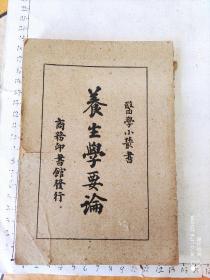 醫學小叢書
養生學要論
商務印書館發行